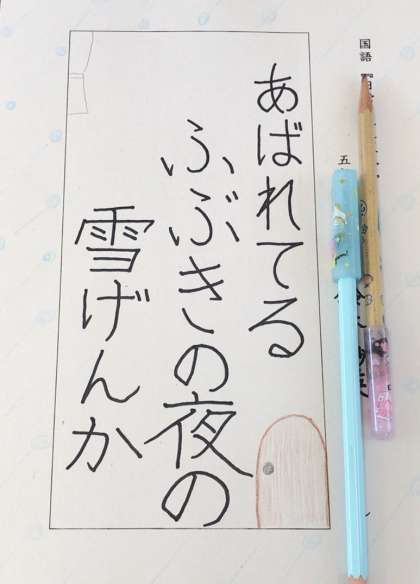 あばれてる
ふぶきの夜の
雪げんか
国語
五